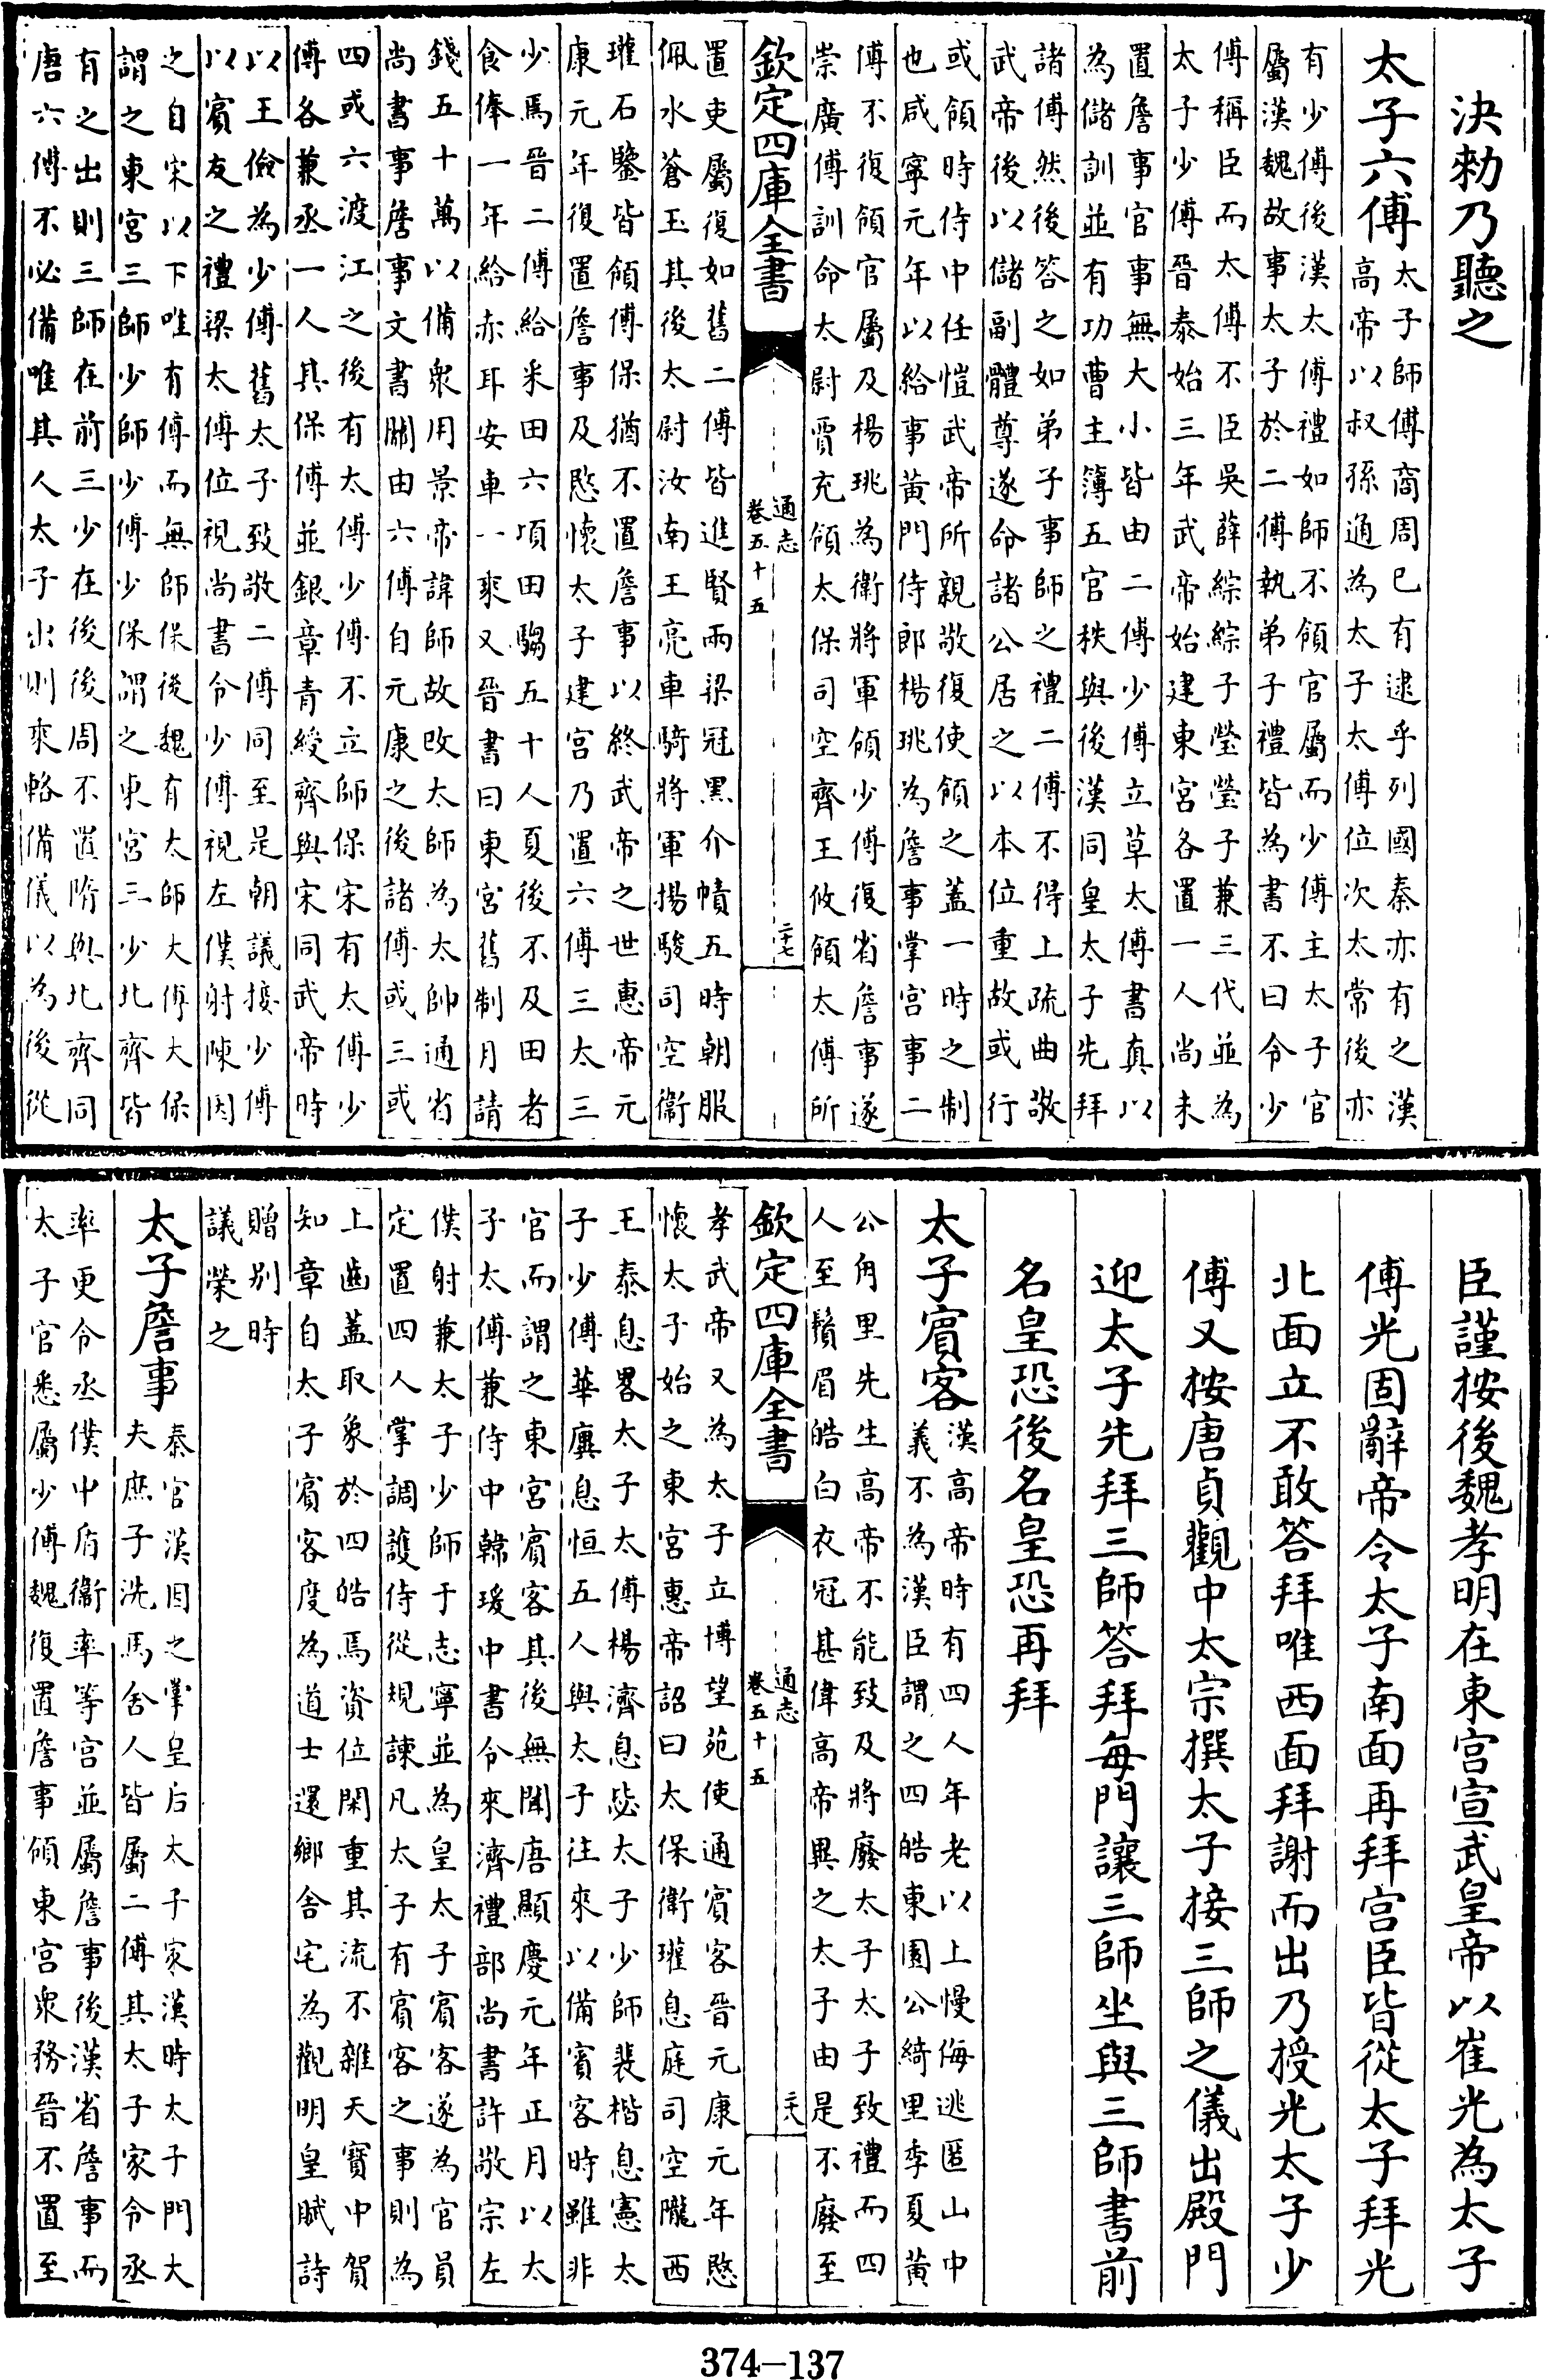 決勑乃聽之
太子六傅太子師傅商周已有逮乎列國秦亦有之漢
高帝以叔孫通為太子太傅位次太常後亦
有少傅後漢太傅禮如師不領官屬而少傅主太子官
屬漢魏故事太子於二傅執弟子禮皆為書不曰令少
傅稱臣而太傅不臣吳薛綜綜子瑩瑩子兼三代並為
太子少傅晉泰始三年武帝始建東宮各置一人尚未
置詹事官事無大小皆由二傅少傅立草太傅書真以
為儲訓並有功曹主簿五官秩與後漢同皇太子先拜
諸傅然後答之如弟子事師之禮二傅不得上疏曲敬
武帝後以儲副體尊遂命諸公居之以本位重故或行
或領時侍中任愷武帝所親敬復使領之蓋一時之制
也咸寧元年以給事黃門侍郎楊珧為詹事掌宮事二
傅不復領官屬及楊珧為衛將軍領少傅復省詹事遂
崇廣傅訓命太尉賈充領太保司空齊王攸領太傅所
欽定四庫全書
通志
卷五十五
二十七
置吏屬復如舊二傅皆進賢兩梁冠黑介幘五時朝服
佩水蒼玉其後太尉汝南王亮車騎將軍揚駿司空衞
瓘石鑒皆領傅保猶不置詹事以終武帝之世惠帝元
康元年復置詹事及愍懷太子建宮乃置六傅三太三
少焉晉二傅給米田六項田騶五十人夏後不及田者
食俸一年給赤耳安車一乘又晉書曰東宮舊制月請
錢五十萬以備衆用景帝諱師故改太師為太帥通省
尚書事詹事文書關由六傅自元康之後諸傅或三或
四或六渡江之後有太傅少傅不立師保宋有太傅少
傅各兼丞一人其保傅並銀章青綬齊與宋同武帝時
以王儉為少傅舊太子致敬二傅同至是朝議接少傅
以賓友之禮梁太傅位視尚書令少傅視左僕射陳因
之自宋以下唯有傅而無師保後魏有太師太傅太保
謂之東宮三師少師少傅少保謂之東宮三少北齊皆
有之出則三師在前三少在後後周不置隋與北齊同
唐六傅不必備唯其人太子出則乘輅備儀以為後從
臣謹按後魏孝明在東宮宣武皇帝以崔光為太子
傅光固辭帝令太子南面再拜宮臣皆從太子拜光
北面立不敢答拜唯西面拜謝而出乃授光太子少
傅又按唐貞觀中太宗撰太子接三師之儀出殿門
迎太子先拜三師答拜每門讓三師坐與三師書前
名皇恐後名皇恐再拜
太子賓客漢高帝時有四人年老以上慢侮逃匿山中
義不為漢臣謂之四皓東園公綺里季夏黃
公角里先生高帝不能致及將廢太子太子致禮而四
人至鬚眉皓白衣冠甚偉高帝異之太子由是不廢至
欽定四庫全書
通志
卷五十五
二十八
孝武帝又為太子立博望苑使通賓客晉元康元年愍
懷太子始之東宮惠帝詔曰太保衛瓘息庭司空隴西
王泰息畧太子太傅楊濟息毖太子少師裴楷息憲太
子少傅華廙息恒五人與太子往來以備賓客時雖非
官而謂之東宮賓客其後無聞唐顯慶元年正月以太
子太傅兼侍中韓瑗中書令來濟禮部尚書許敬宗左
僕射兼太子少師于志寧並為皇太子賓客遂為官員
定置四人掌調護侍從規諫凡太子有賓客之事則為
上齒蓋取象於四皓焉資位閑重其流不雜天寶中賀
知章自太子賓客度為道士還鄉舍宅為觀明皇賦詩
贈別時
議榮之
太子詹事秦官漢因之掌皇后太子家漢時太子門大
夫庶子洗馬舍人皆屬二傅其太子家令丞
率更令丞僕中盾衞率等官並屬詹事後漢省詹事而
太子官悉屬少傅魏復置詹事領東宮衆務晉不置至
374-137